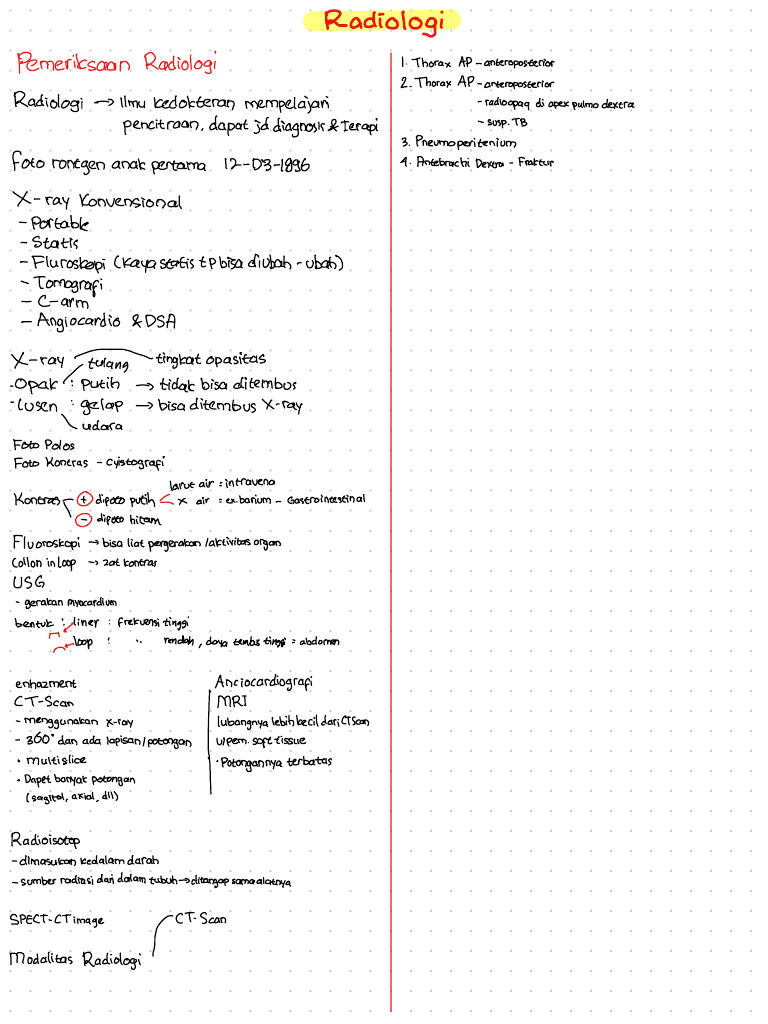 Radiologi
Pemeriksaan Radiologi
Radiologi → Ilmu kedokteran mempelajari
pencitraan, dapat jd diagnosik & terapi
foto rontgen anak pertama 12-03-1896
X-ray Konvensional
- Portable
- Statis
- Fluroskopi (kaya statis tp bisa diubah-ubah)
- Tomografi
- C-arm
- Angiocardio & DSA
X-ray tingkat opasitas
tulang
- Opak : putih → tidak bisa ditembus
- Lusen : gelap → bisa ditembus X-ray
udara
Foto Polos
Foto Kontras - Cyistografi
larut air : intravena
Kontras + dipoto putih x air : ex.barium - Gastrointestinal
- dipoto hitam
Fluoroskopi → bisa liat pergerakan/aktivitas organ
Collon in loop → zat kontras
USG
- gerakan myocardium
bentuk : liner : frekuensi tinggi
loop : " rendah, daya tembs tinggi = abdomen
enhazment
CT-Scan
- menggunakan x-ray
- 360° dan ada lapisan/potongan
• multislice
• Dapet banyak potongan
(sagital, axial, dll)
Anciocardiografi
MRI
lubangnya lebih kecil dari CT Scan
u/pem. soft tissue
• Potongannya terbatas
Radioisotop
- dimasukan kedalam darah
- sumber radiasi dari dalam tubuh → ditangap sama alatnya
SPECT-CT image
CT-Scan
Modalitas Radiologi
1. Thorax AP - anteroposterior
2. Thorax AP - anteroposterior
- radioopaq di apex pulmo dextra
- susp. TB
3. Pneumoperitenium
4. Antebrachi Dextra - Fraktur